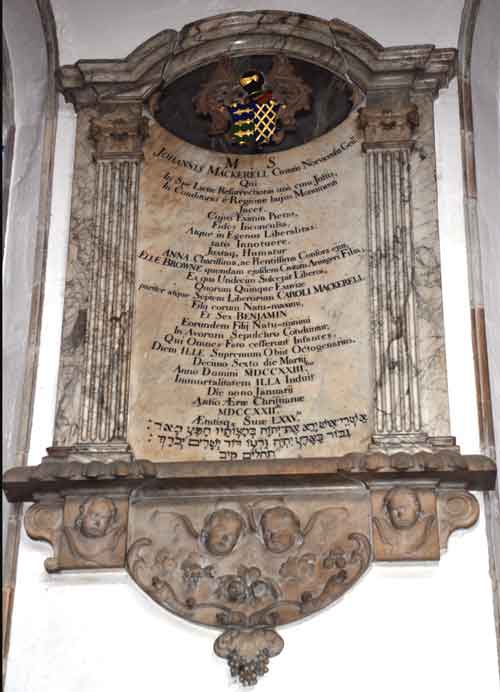 M S
JOHANNIS MACKERELL Civitatis Norvicensis Gen.
Qui
In Spe Lætæ Resurrectionis unà cum Justis,
In Conditorio è Regione hujus Monumenti
Jacet.
Cujus Eximia Pietas,
Fides Inconcussa,
Atque in Egenos Liberalitas.
satò Innotuere.
Juxtaq; Humatur
ANNA Charissima, ac Pientissima Consors ejus,
ELIÆ BROWNE quondam ejusdem Civitatis Armigeri Filia,
Ex qua Undecim Suscepit Liberos,
Quorum Quinque Exuviæ
pariter atque Septem Liberorum CAROLI MACKERELL
Filij eorum Natu-maximi,
Et Sex BENJAMIN
Eorundem Filij Natu-minimi
In Avorum Sepulchro Conduntur,
Qui Omnes Fato cesserunt Infantes.
Diem ILLE Supremum Obiit Octogenarius,
Decimo Sexto die Martij
Anno Domini MDCCXXIII
Immortalitatem ILLA Induit
Die nono Januarij
Anno Æræ Christianæ
MDCCXXII
Ætatisq; Suæ LXXV
אשרי איש ירא את יהוה במצותיו חפץ מאד:
גבור בארץ יהיה זרעו דור ישרים יברך:
תהלים קיב